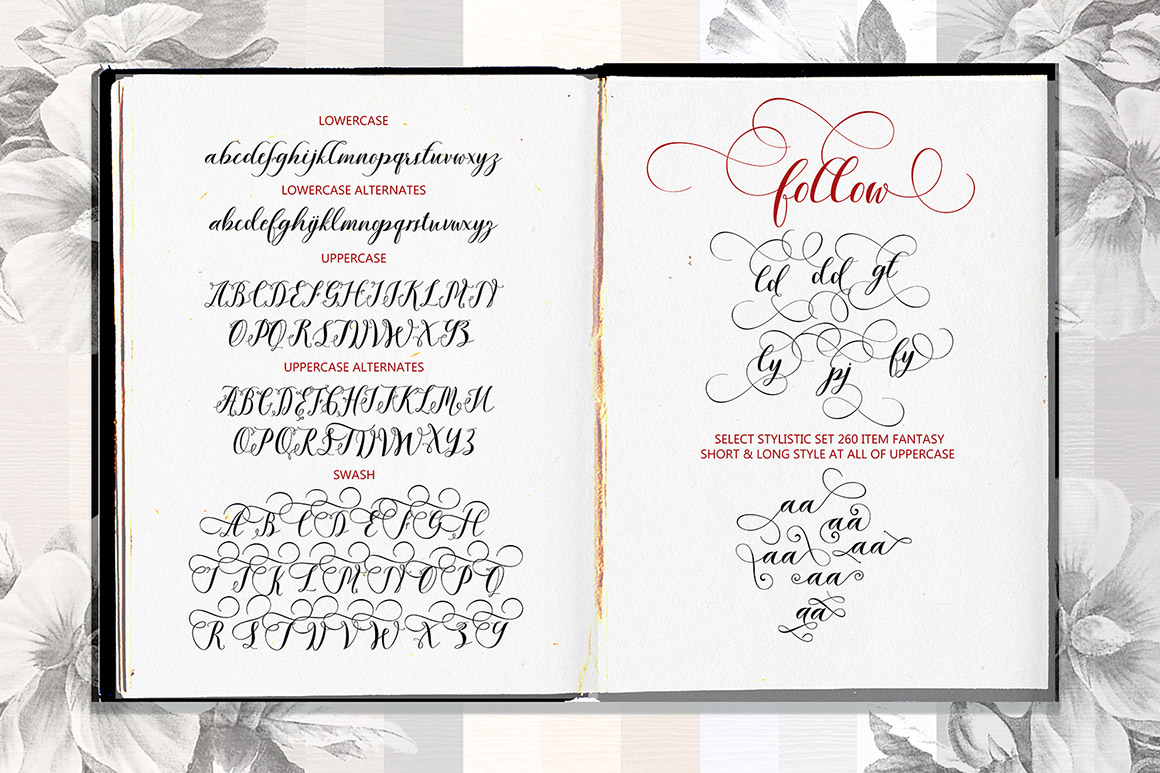 LOWERCASE
abcdefghijklmnopqrstuvwxyz
LOWERCASE ALTERNATES
abcdefghijklmnopqrstuvwxyz
UPPERCASE
ABCDEFGHIJKLMN
OPQRSTUVWXYZ
UPPERCASE ALTERNATES
ABCDEFGHIJKLMN
OPQRSTUVWXYZ
SWASH
A B C D E F G H
I J K L M N O P Q
R S T U V W X Z Y
follow
ld dd gt
ly pj fy
SELECT STYLISTIC SET 260 ITEM FANTASY
SHORT & LONG STYLE AT ALL OF UPPERCASE
aa
aa
aa aa
aa
aa